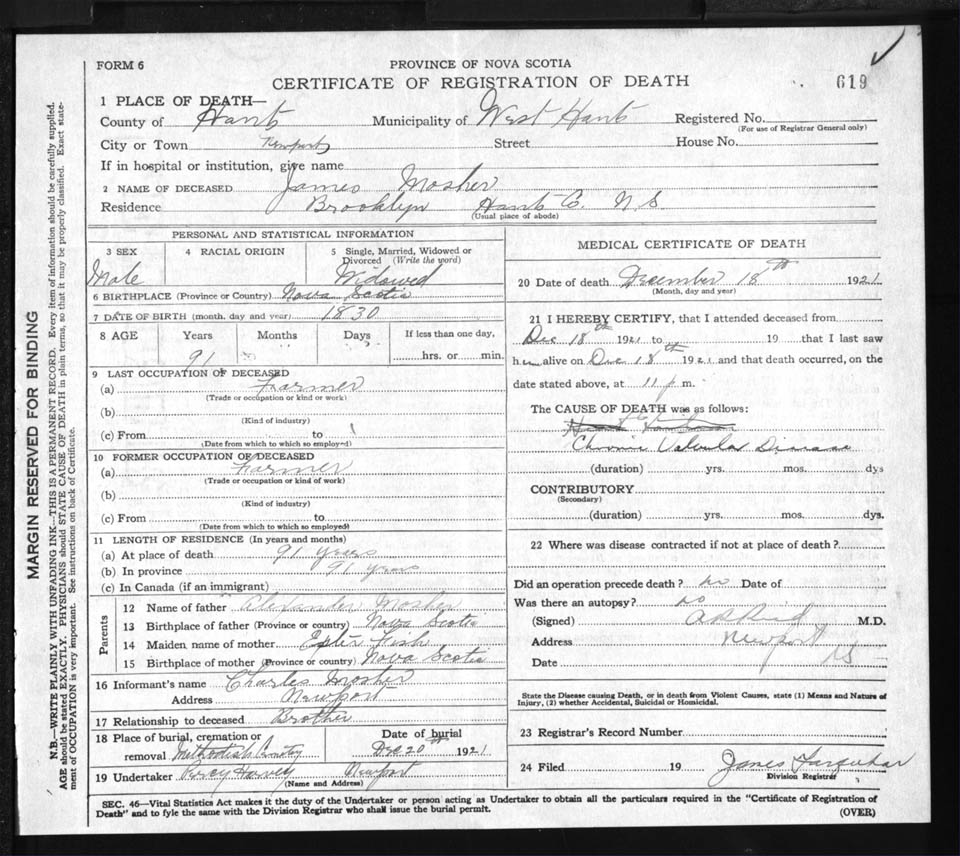 FORM 6
PROVINCE OF NOVA SCOTIA
CERTIFICATE OF REGISTRATION OF DEATH
619
1 PLACE OF DEATH—
County of Hants Municipality of West Hants Registered No.
(For use of Registrar General only)
City or Town Newport Street House No.
If in hospital or institution, give name
2 NAME OF DECEASED James Mosher
Residence Brooklyn Hants Co. N.S.
(Usual place of abode)
PERSONAL AND STATISTICAL INFORMATION
3 SEX
Male
4 RACIAL ORIGIN
5 Single, Married, Widowed or
Divorced (Write the word)
Widowed
6 BIRTHPLACE (Province or Country) Nova Scotia
7 DATE OF BIRTH (month, day and year) 1830
8 AGE Years Months Days If less than one day,
91 hrs. or min.
9 LAST OCCUPATION OF DECEASED
(a) Farmer
(Trade or occupation or kind or work)
(b)
(Kind of industry)
(c) From to
(Date from which to which so employed)
10 FORMER OCCUPATION OF DECEASED
(a) Farmer
(Trade or occupation or kind of work)
(b)
(Kind of industry)
(c) From to
(Date from which to which so employed)
11 LENGTH OF RESIDENCE (In years and months)
(a) At place of death 91 years
(b) In province 91 years
(c) In Canada (if an immigrant)
Parents
12 Name of father Alexander Mosher
13 Birthplace of father (Province or country) Nova Scotia
14 Maiden name of mother Fish
15 Birthplace of mother (Province or country) Nova Scotia
16 Informant's name Charles Mosher
Address Newport
17 Relationship to deceased Brother
18 Place of burial, cremation or
removal Methodist Cemetry
Date of burial
Dec 20th 1921
19 Undertaker Percy Harvey Newport
(Name and Address)
MEDICAL CERTIFICATE OF DEATH
20 Date of death December 18th 1921
(Month, day and year)
21 I HEREBY CERTIFY, that I attended deceased from
Dec 18th 1921 to 19 that I last saw
him alive on Dec 18th 1921 and that death occurred, on the
date stated above, at 11 p m.
The CAUSE OF DEATH was as follows:
Chronic Valvular Disease
(duration) yrs. mos. dys
CONTRIBUTORY
(Secondary)
(duration) yrs. mos. dys.
22 Where was disease contracted if not at place of death?
Did an operation precede death? no Date of
Was there an autopsy? no
(Signed) M.D.
Address Newport
Date NS
State the Disease causing Death, or in death from Violent Causes, state (1) Means and Nature of
Injury, (2) whether Accidental, Suicidal or Homicidal.
23 Registrar's Record Number
24 Filed 19 James Farquhar
Division Registrar
SEC. 46—Vital Statistics Act makes it the duty of the Undertaker or person acting as Undertaker to obtain all the particulars required in the "Certificate of Registration of
Death" and to fyle the same with the Division Registrar who shall issue the burial permit.
(OVER)
MARGIN RESERVED FOR BINDING
N.B.—WRITE PLAINLY WITH UNFADING INK—THIS IS A PERMANENT RECORD. Every item of information should be carefully supplied.
AGE should be stated EXACTLY. PHYSICIANS should STATE CAUSE OF DEATH in plain terms, so that it may be properly classified. Exact state-
ment of OCCUPATION is very important. See instructions on back of Certificate.